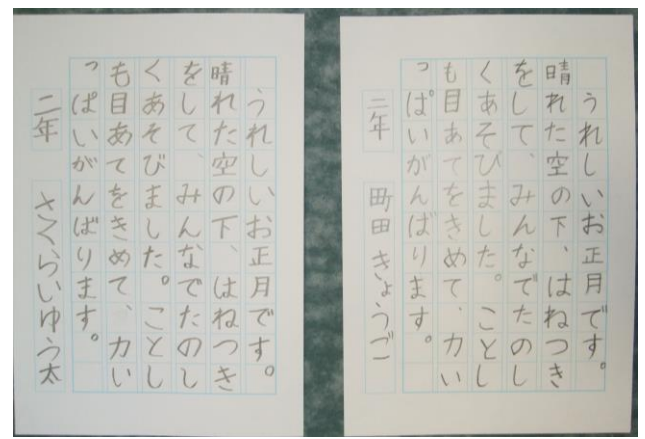 うれしいお正月です。
晴れた空の下、はねつき
をして、みんなでたのし
くあそびました。ことし
も目あてをきめて、力い
っぱいがんばります。
二年 町田きょうご
うれしいお正月です。
晴れた空の下、はねつき
をして、みんなでたのし
くあそびました。ことし
も目あてをきめて、力い
っぱいがんばります。
二年 さくらいゆう太